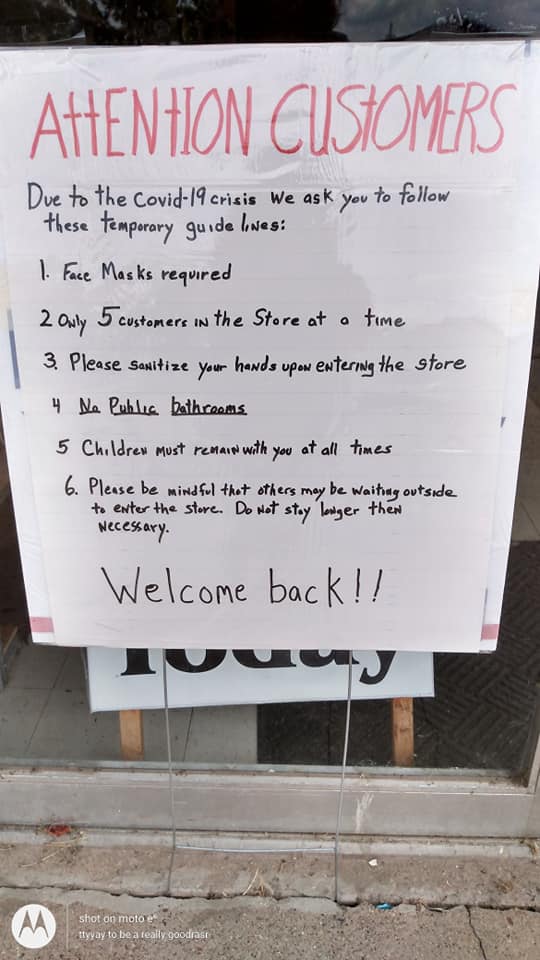 AttENtION CUStOMERS
Due to the Covid-19 crisis we ask you to follow
these temporary guide lines:
1. Face Masks required
2 Only 5 customers in the Store at a time
3. Please sanitize your hands upon entering the store
4 No Public bathrooms
5 Children must remain with you at all times
6. Please be mindful that others may be waiting outside
to enter the store. Do not stay longer then
necessary.
Welcome back!!
Today
shot on moto e⁶
ttyyay to be a really goodrasr